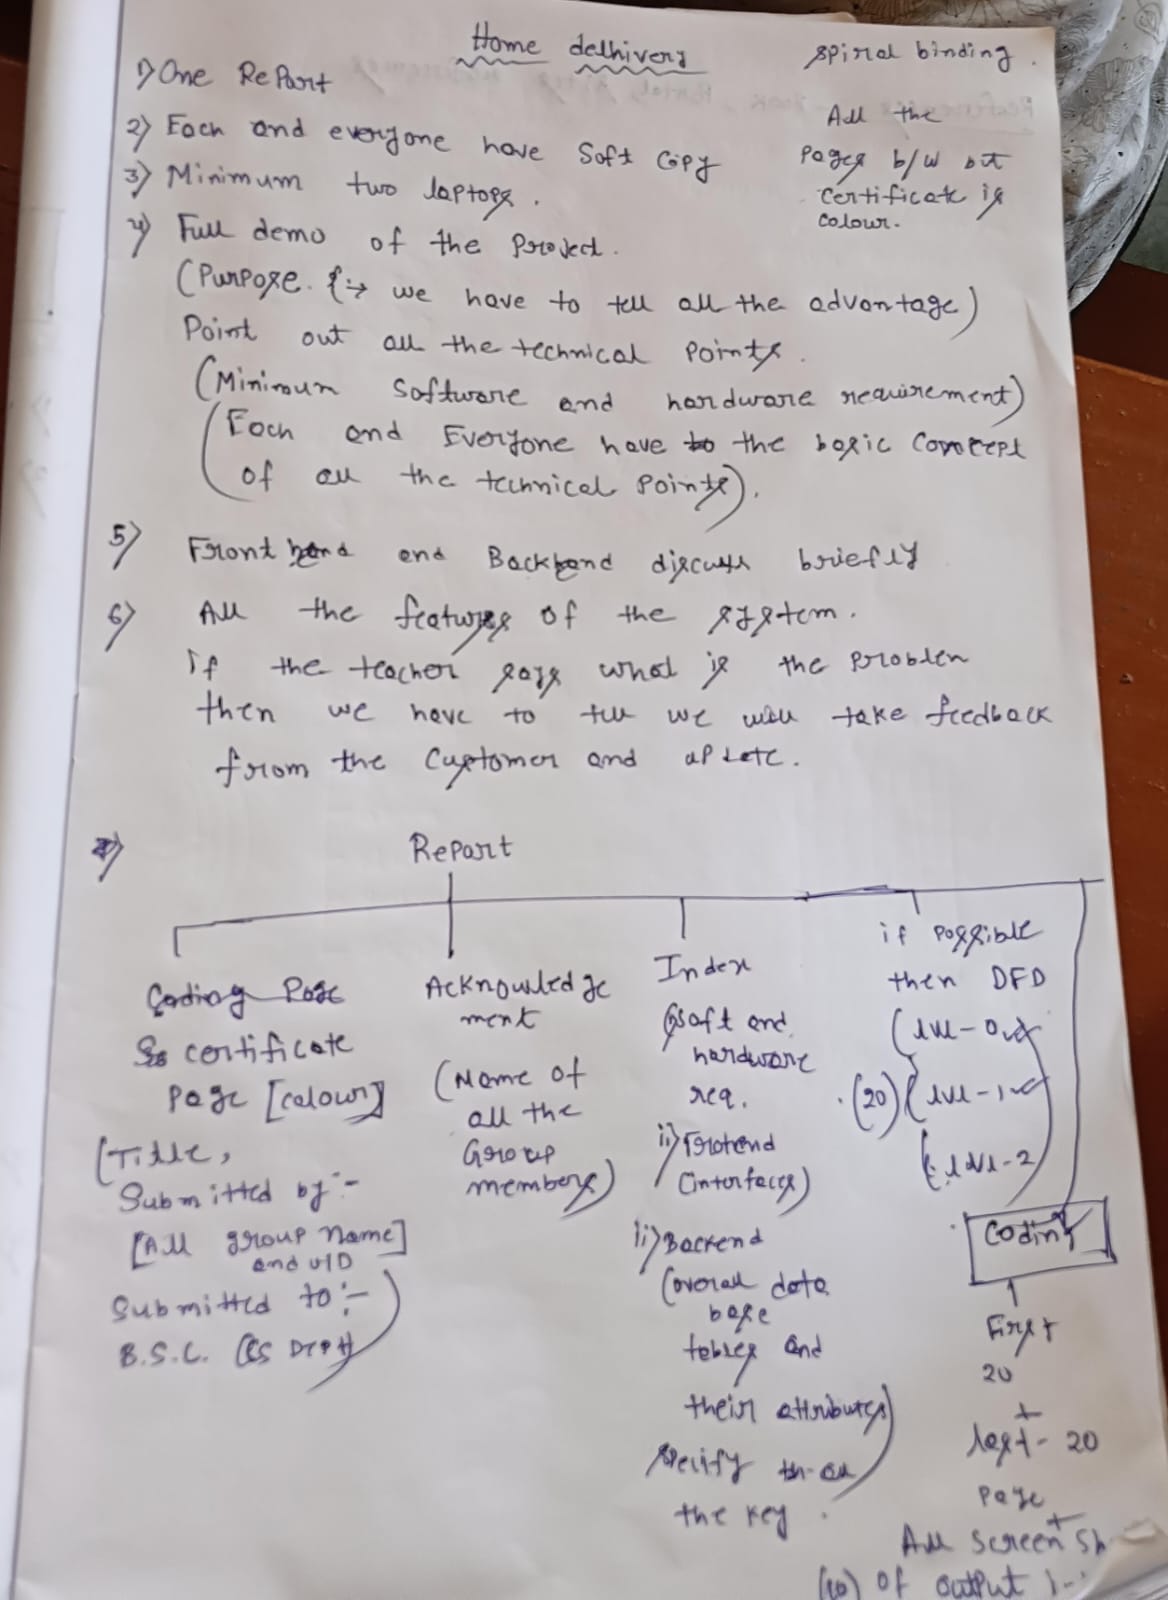 Home delhivery
spiral binding.
1) One Report
All the
pages b/w but
certificate is
colour.
2) Each and everyone have Soft Copy
3) Minimum two laptops.
4) Full demo of the Project.
(Purpose. {→ we have to tell all the advantage)
Point out all the technical points.
(Minimum Software and hardware requirement)
(Each and Everyone have to the basic concept
of all the technical points).
5) Front end and Backend discuss briefly
6) All the features of the system.
if the teacher says what is the problem
then we have to tell we will take feedback
from the Customer and update.
7)
Report
Coding Page
certificate
page [colour]
(Title,
Submitted by:-
[All group name]
and UID
Submitted to:-
B.S.C. (CS DEPT)
Acknowledge
ment
(Name of
all the
Group
members)
Index
i) soft and
hardware
req.
ii) Frotend
(interfaces)
ii) Backend
(overall data
base
tables and
their attributes)
specify all
the key.
if possible
then DFD
(lvl-0
(20) (lvl-1
(lvl-2)
Coding
First
20
+
last-20
page
+
All screen sh
(10) of output